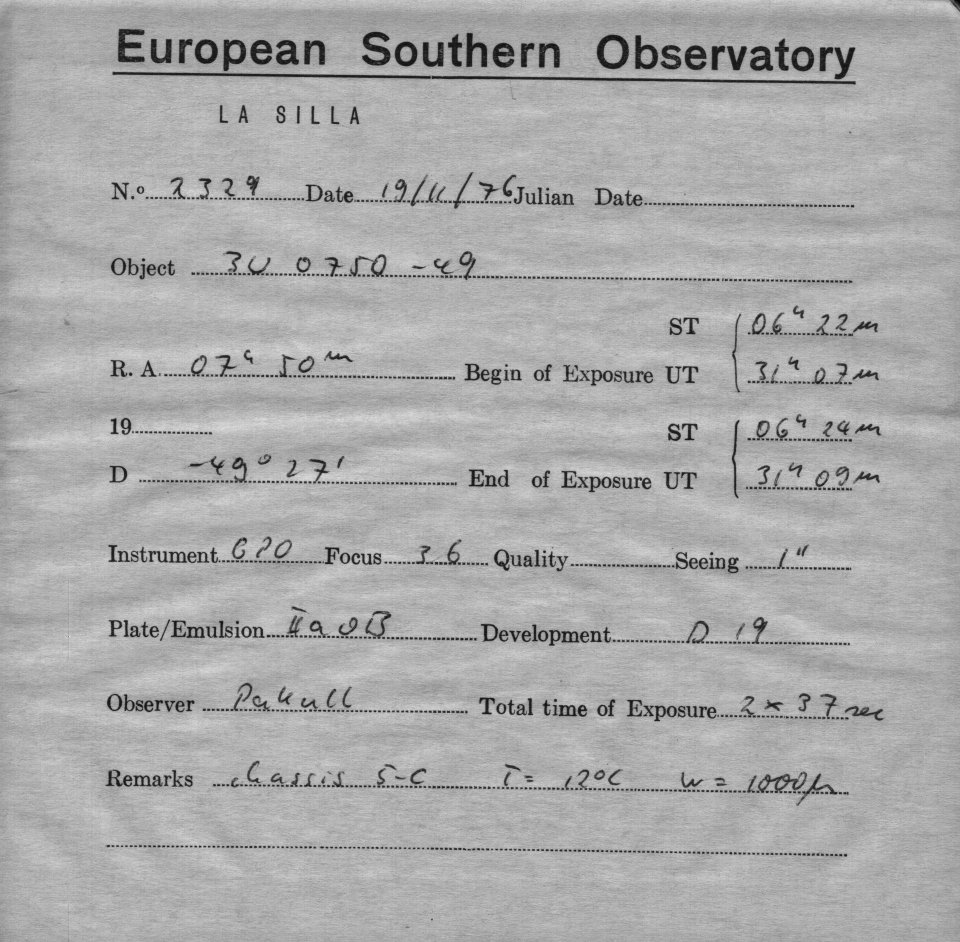 European Southern Observatory
LA SILLA
N.o 2329 Date 19/11/76 Julian Date
Object 3U 0750 -49
ST 06h 22m
R. A. 07h 50m Begin of Exposure UT 31h 07m
19 ST 06h 24m
D -49° 27' End of Exposure UT 31h 09m
Instrument GPO Focus 3.6 Quality Seeing 1"
Plate/Emulsion IIa O B Development D 19
Observer Pakull Total time of Exposure 2 x 37 sec
Remarks chassis 5-C T = 12°C W = 1000μ